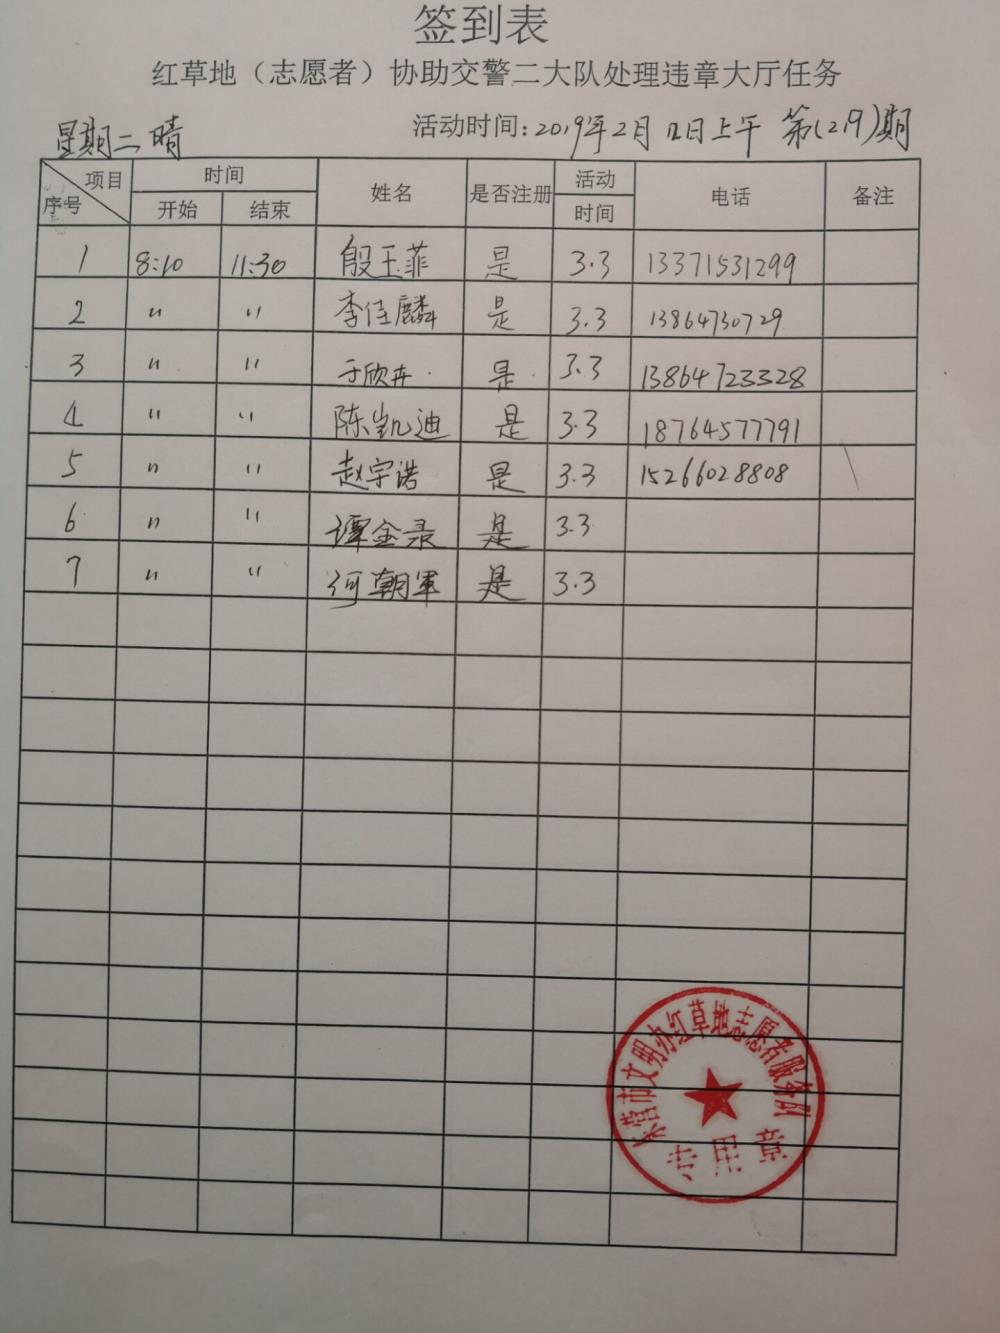 签到表
红草地（志愿者）协助交警二大队处理违章大厅任务
星期二 晴 活动时间：2019年2月12日上午 第(219)期
项目 序号 时间 开始 结束 姓名 是否注册 活动时间 电话 备注
1 8:10 11:30 殷玉菲 是 3.3 13371531299
2 〃 〃 李佳麟 是 3.3 13864730729
3 〃 〃 于欣卉 是 3.3 13864723328
4 〃 〃 陈凯迪 是 3.3 18764577791
5 〃 〃 赵宇诺 是 3.3 15266028808
6 〃 〃 谭金录 是 3.3
7 〃 〃 朝軍 是 3.3
东营市文明办红草地志愿者服务队
专用章